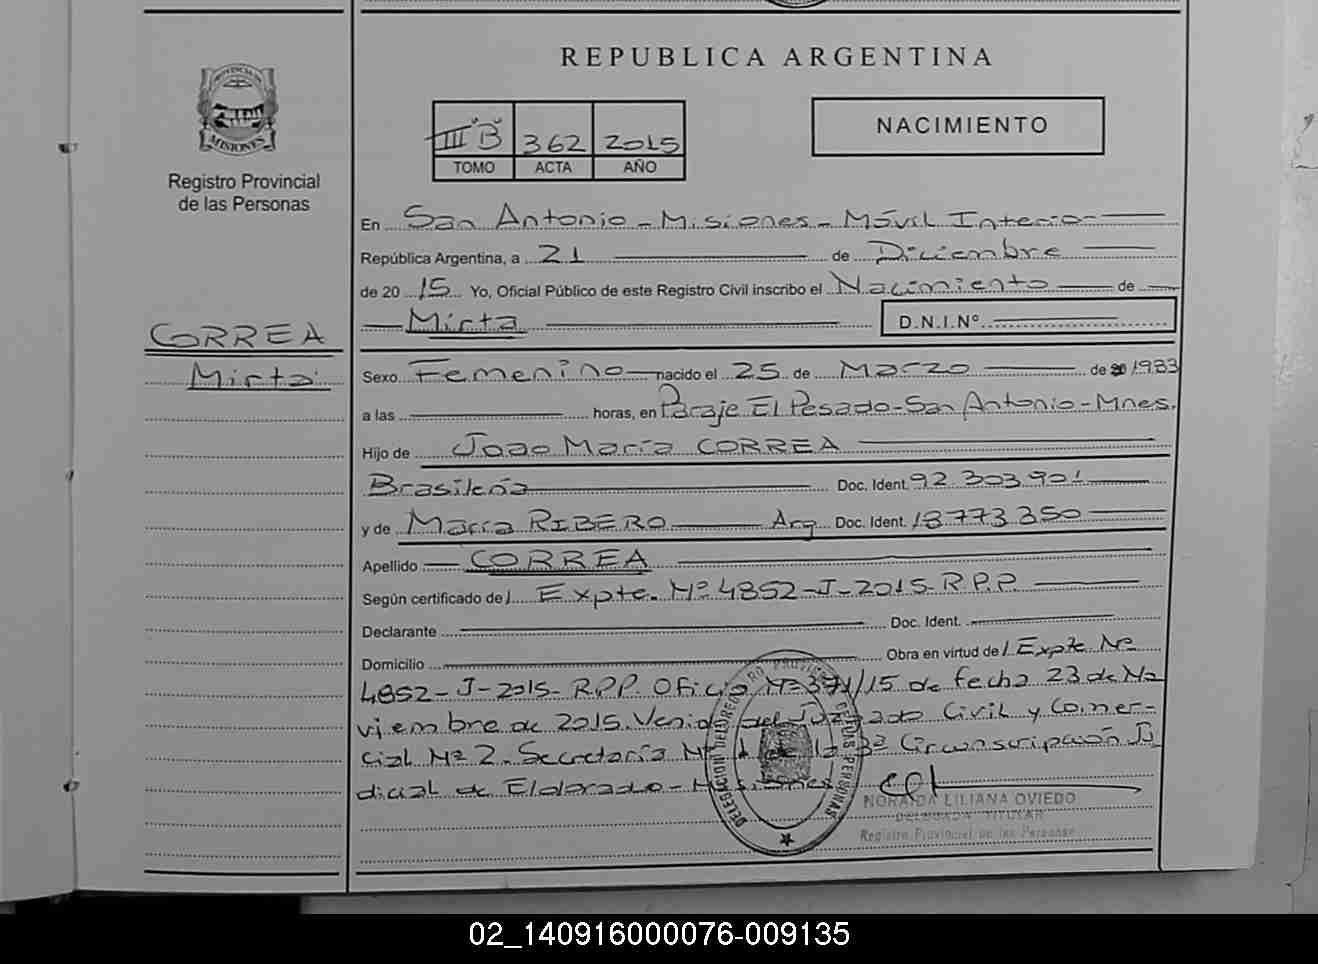 REPUBLICA ARGENTINA
PROVINCIA DE
MISIONES
Registro Provincial
de las Personas
III "B" 362 2015
TOMO ACTA AÑO
NACIMIENTO
En San Antonio - Misiones - Móvil Interio-
República Argentina, a 21 de Diciembre
de 20 15 Yo, Oficial Público de este Registro Civil inscribo el Nacimiento de
Mirta D.N.I.Nº
CORREA
Mirta
Sexo Femenino nacido el 25 de Marzo de 1983
a las horas, en Paraje El Pesado - San Antonio - Mnes.
Hijo de Joao María CORREA
Brasileña Doc. Ident. 92.303.901
y de María RIBERO Arg Doc. Ident. 18773350
Apellido CORREA
Según certificado de/ Expte. Nº 4852-J-2015-R.P.P.
Declarante Doc. Ident.
Domicilio Obra en virtud de/ Expte Nº
4852-J-2015- R.P.P. Oficio Nº 371/15 de fecha 23 de No
viembre de 2015. Venido del Juzgado Civil y Comer-
cial Nº 2. Secretaría Nº 1 de la 3ª Circunscripción Ju
dicial de Eldorado - Misiones
NORAIDA LILIANA OVIEDO
DELEGADA TITULAR
Registro Provincial de las Personas
DELEGACION DEL REGISTRO PROVINCIAL DE LAS PERSONAS
02_140916000076-009135